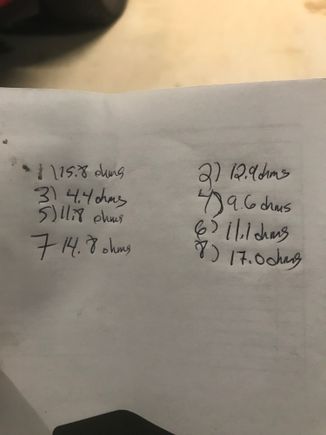 1) 15.8 ohms 2) 12.9 ohms
3) 4.4 ohms 4) 9.6 ohms
5) 11.8 ohms 6) 11.1 ohms
7 14.8 ohms 8) 17.0 ohms